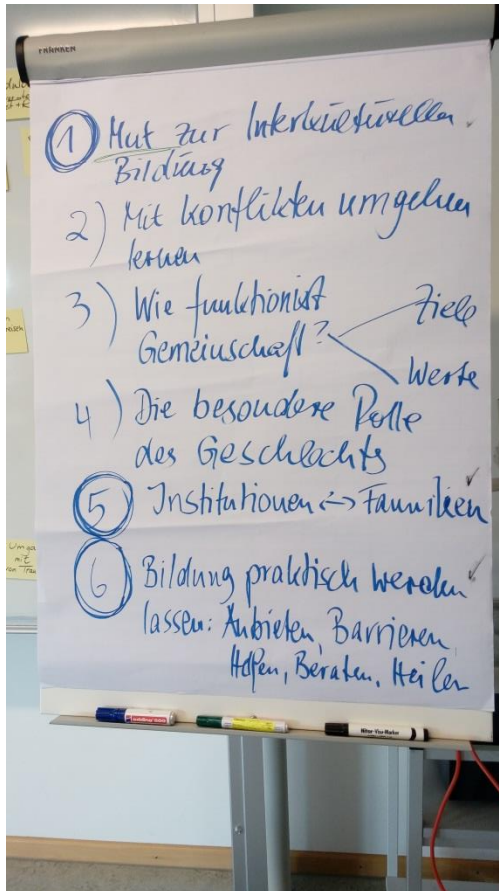 FRANKEN
1 Mut zur Interkulturellen
Bildung
2) Mit Konflikten umgehen
lernen
3) Wie funktioniert
Gemeinschaft?
Ziele
Werte
4) Die besondere Rolle
des Geschlechts
5 Institutionen <-> Familien
6 Bildung praktisch werden
lassen: Anbieten, Barrieren,
Helfen, Beraten, Heilen
Umga
mit
edding 500